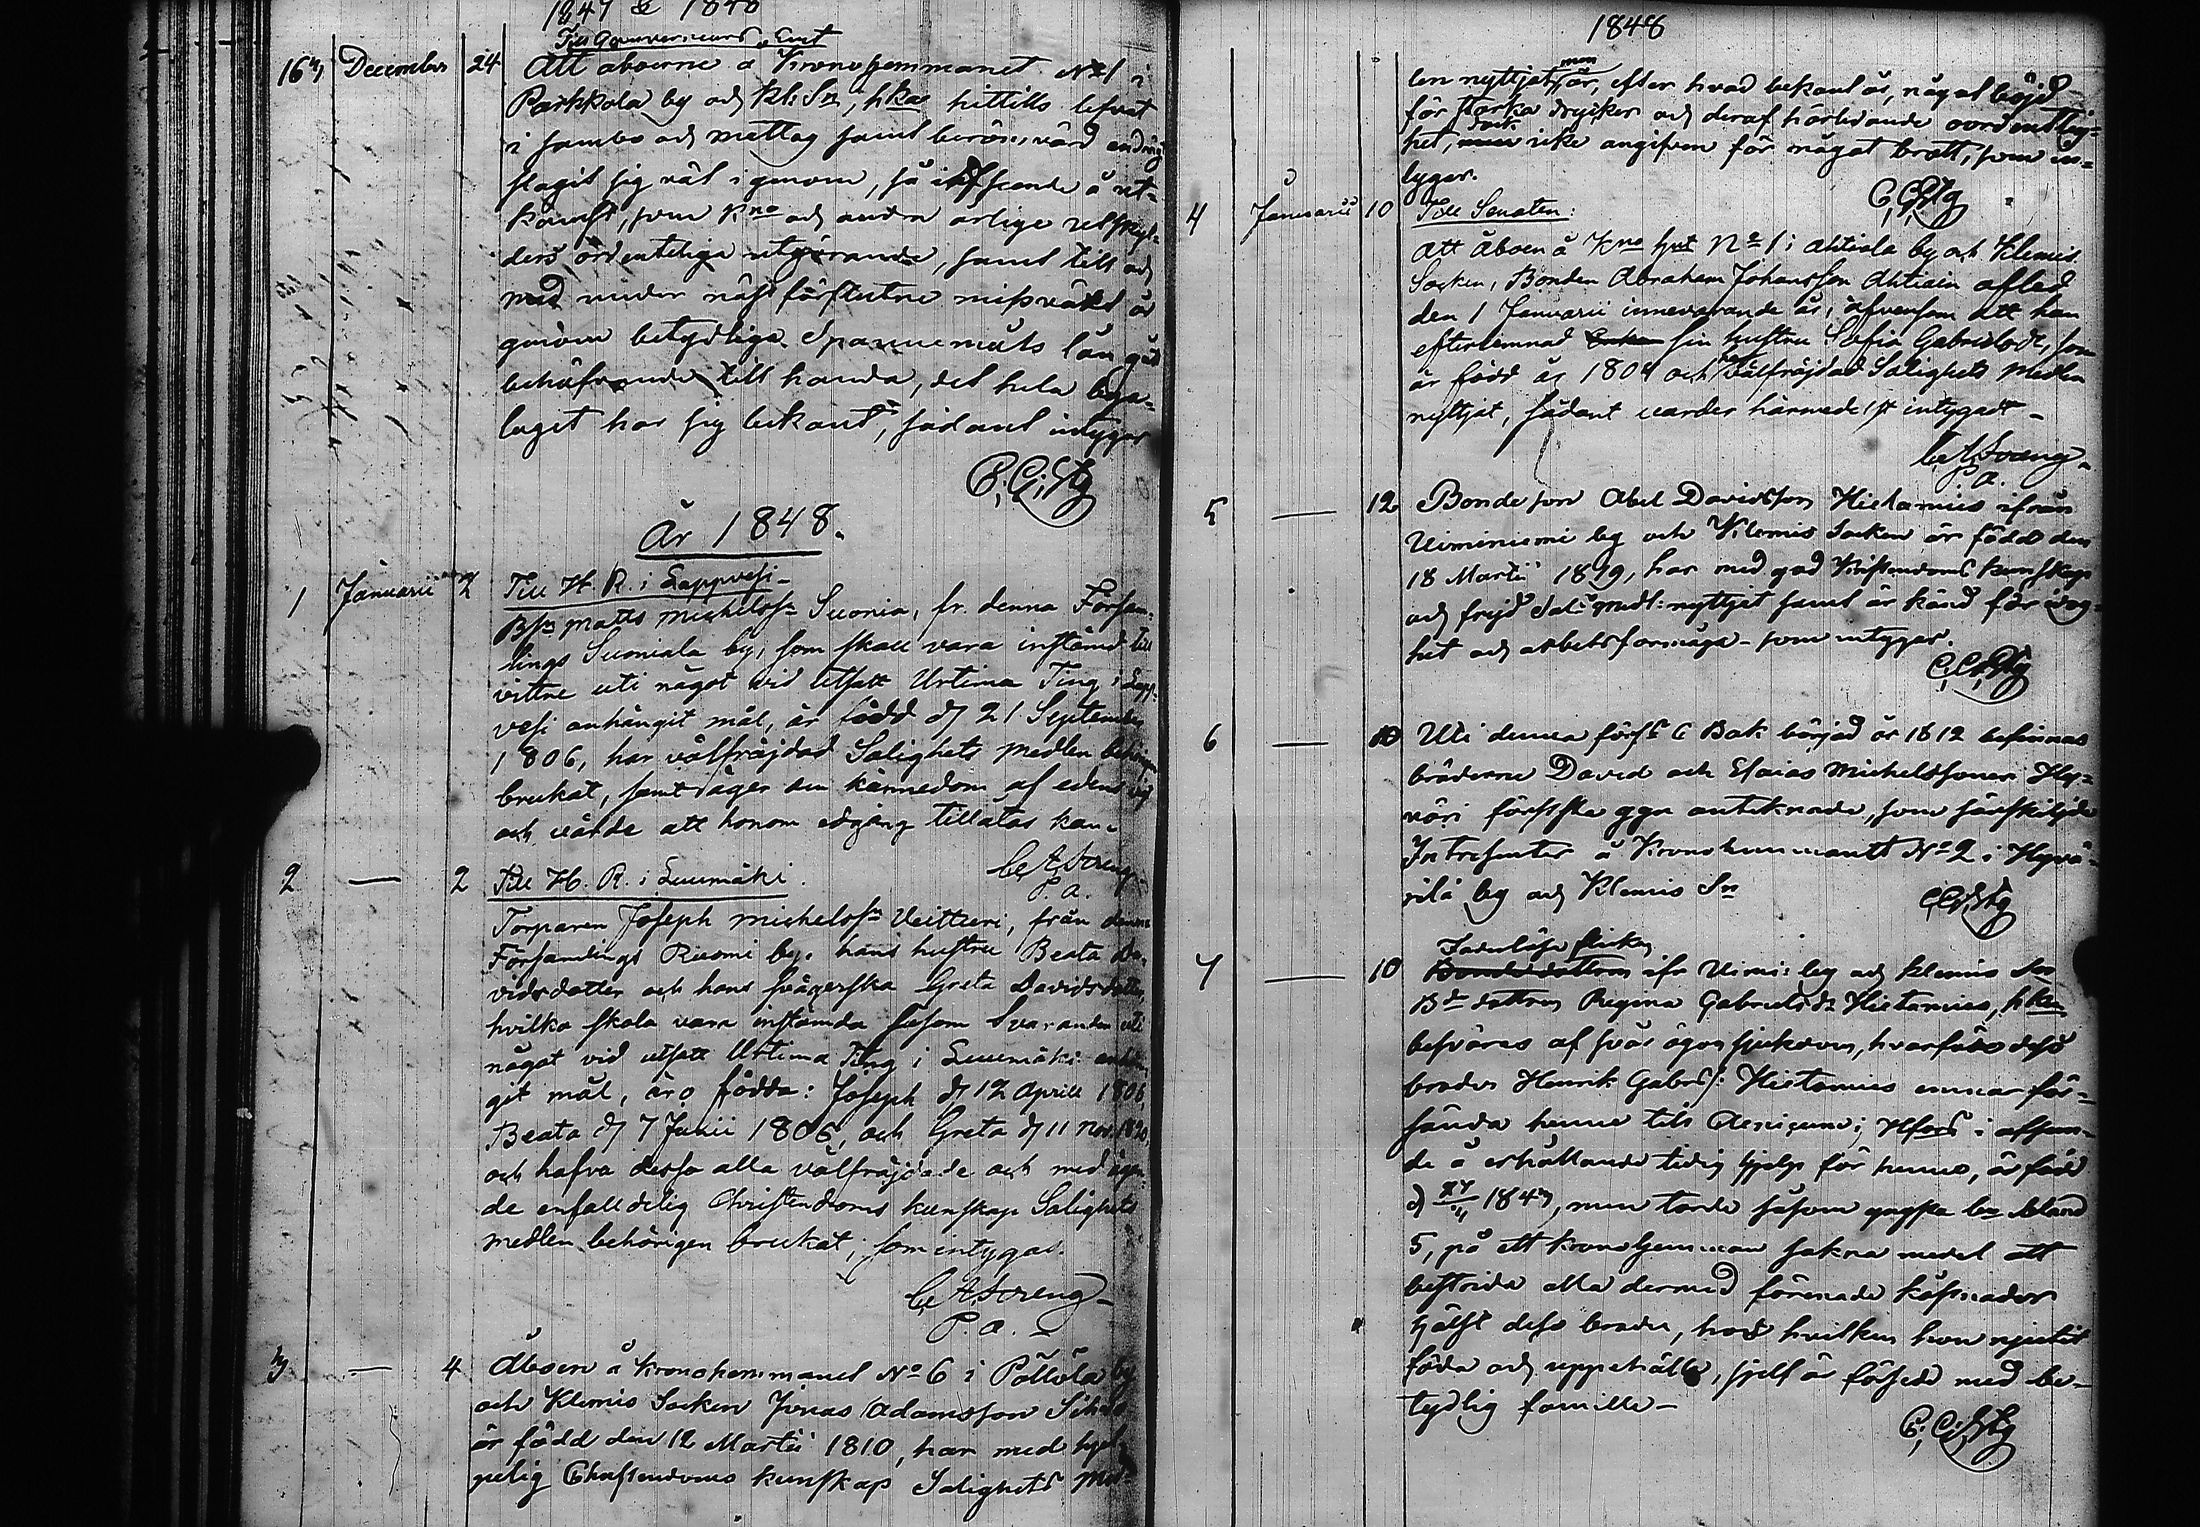 1847 & 1848
Till Gouverneurs Emt
163 December 24 Att åboerne å Kronohemmanet No 1 i
Parkkola by och Kl: Sn, hka hittills lefvat
i sambo och matlag samt berömvärd endrägt
slagit sig väl igenom, så i afseende å ut-
komst, som Kno och andra årlige utskyl-
ders ordenteliga utgörande, samt till och
med under näst förflutne missväxt år
genom betydlige Spannemåls lån gåt
behöfvande till handa, det hela bya-
laget har sig bekant, sådant intygar
C. C. Stg
År 1848.
1 Januarii 2 Till H. R. i Lappvesi
Bsn Matts Michelssn Suonia, fr. denna Försam-
lings Suoniala by, som skall vara instämd till
vittne uti något vid utsatt Urtima Ting i Lapp-
vesi anhängit mål, är född d 21 September
1806, har välfräjdad Salighets Medlen behörigen
brukat, samt äger den kännedom af edens vigt
och värde att honom edgång tillåtas kan.
P. a.
2 — 2 Till H. R. i Luumäki.
Torparen Joseph Michelssn Veittieri, från denna
Församlings Ruomi by, hans hustru Beata Da-
vidsdotter och hans svägerska Greta Davidsdotter,
hvilka skola vara instämda såsom Svarande uti
något vid utsatt Urtima Ting i Luumäki anhän-
git mål, äro födda: Joseph d 12 Aprill 1806,
Beata d 7 Junii 1806, och Greta d 11 Nov. 1820
och hafva dessa alla välfräjdade och med ägan-
de enfalldelig Christendoms kunskap Salighets
medlen behörigen brukat, som intygas.
P. a.
3 — 4 Åboen å Kronohemmanet No 6 i Pöllölä by
och Klemis Socken Jonas Adamsson Sihvo
är född den 12 Martii 1810, har med hjel-
pelig Christendoms kunskap Salighets Med-
1848
len nyttjat, men är, efter hvad bekant är, något böjd
för starka drycker och deraf härledande oordentlig-
het, dock icke angifven för något brott, som in-
tygar.
C. C. Stg
4 Januarii 10 Till Senaten:
Att åboen å Kno Hmt No 1 i Ahtiala by och Klemis
Socken, Bonden Abraham Johansson Ahtiain afled
den 1 Januarii innevarande år, äfvensom att han
efterlemnad Enkan sin hustru Sofia Gabrielsdr, som
är född år 1804 och välfräjdad Salighets Medlen
nyttjat, sådant varder härmedelst intygadt
P. a.
5 — 12 Bondeson Abel Davidsson Hietamies ifrån
Uiminiemi by och Klemis Socken är född den
18 Martii 1819, har med god Kristendoms kunskap
och frejd Sal: medl: nyttjat samt är känd för idog-
het och arbetsförmåga som intygar.
C. C. Stg
6 — 10 Uti denna förs: C Bok börjad år 1812 befinnas
bröderne David och Esaias Michelssöner Hy-
väri förstfta ggn antecknade, som särskiljde
Intressenter å Kronohemmanet No 2 i Hyvä-
rilä by och Klemis Sn
C. C. Stg
7 — 10 Faderlösa flickan
Bondedottren ifr Uimi: by och Klemis Sn
Bde dottren Regina Gabrielsdr Hietamies, hken
besväras af svår ögonsjukdom, hvarföre dess
broder Henrik Gabrs: Hietamies ernar för-
sända henne till Clenicum i Hfors i afseen-
de å erhållande tidig hjelp för henne, är född
d 1843, men torde såsom yngsta bland
5, på ett Kronohemman sakna medel att
bestrida alla dermed förenade kostnader
hälst dess broder, hos hvilken hon njutit
föda och uppehälle, sjelf är försedd med be-
tydlig famille
C. C. Stg